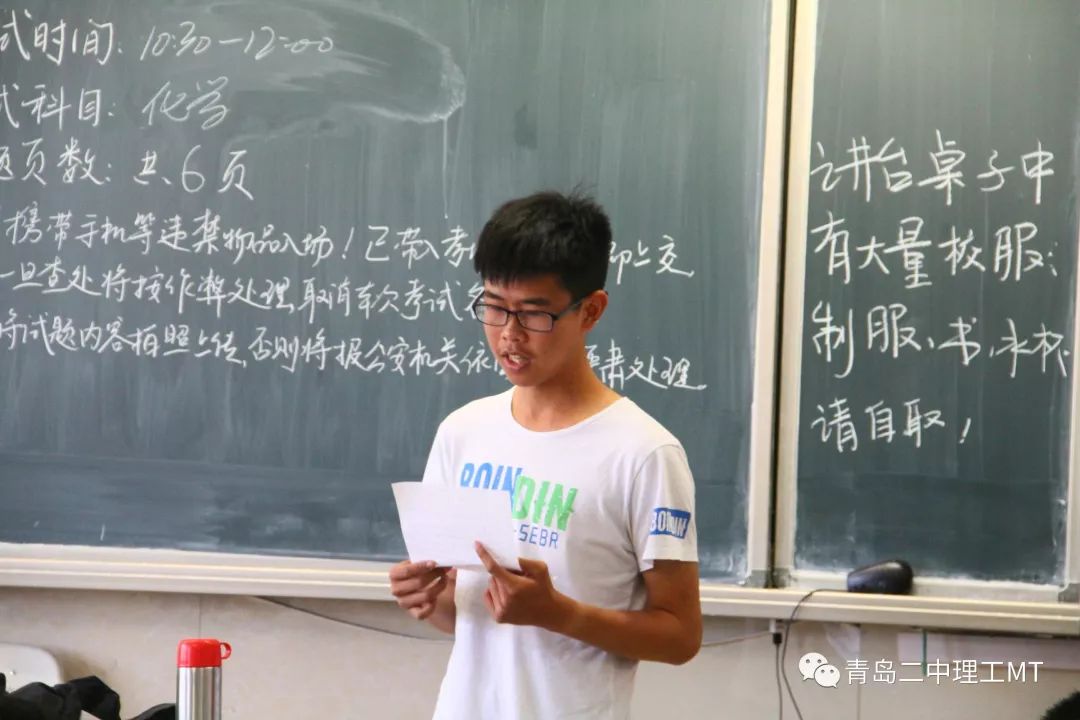 试时间：10:30－12:00
式科目：化学
题页数：共6页
携带手机等违禁物品入场！已带入考 即上交
一旦查处将按作弊处理，取消本次考试
将试题内容拍照上传，否则将报公安机关依 严肃处理
讲台桌子中
有大量校服；
制服、书、水杯.
请自取！
BOIN
DIN
-SEBR
BOINDIN
青岛二中理工MT